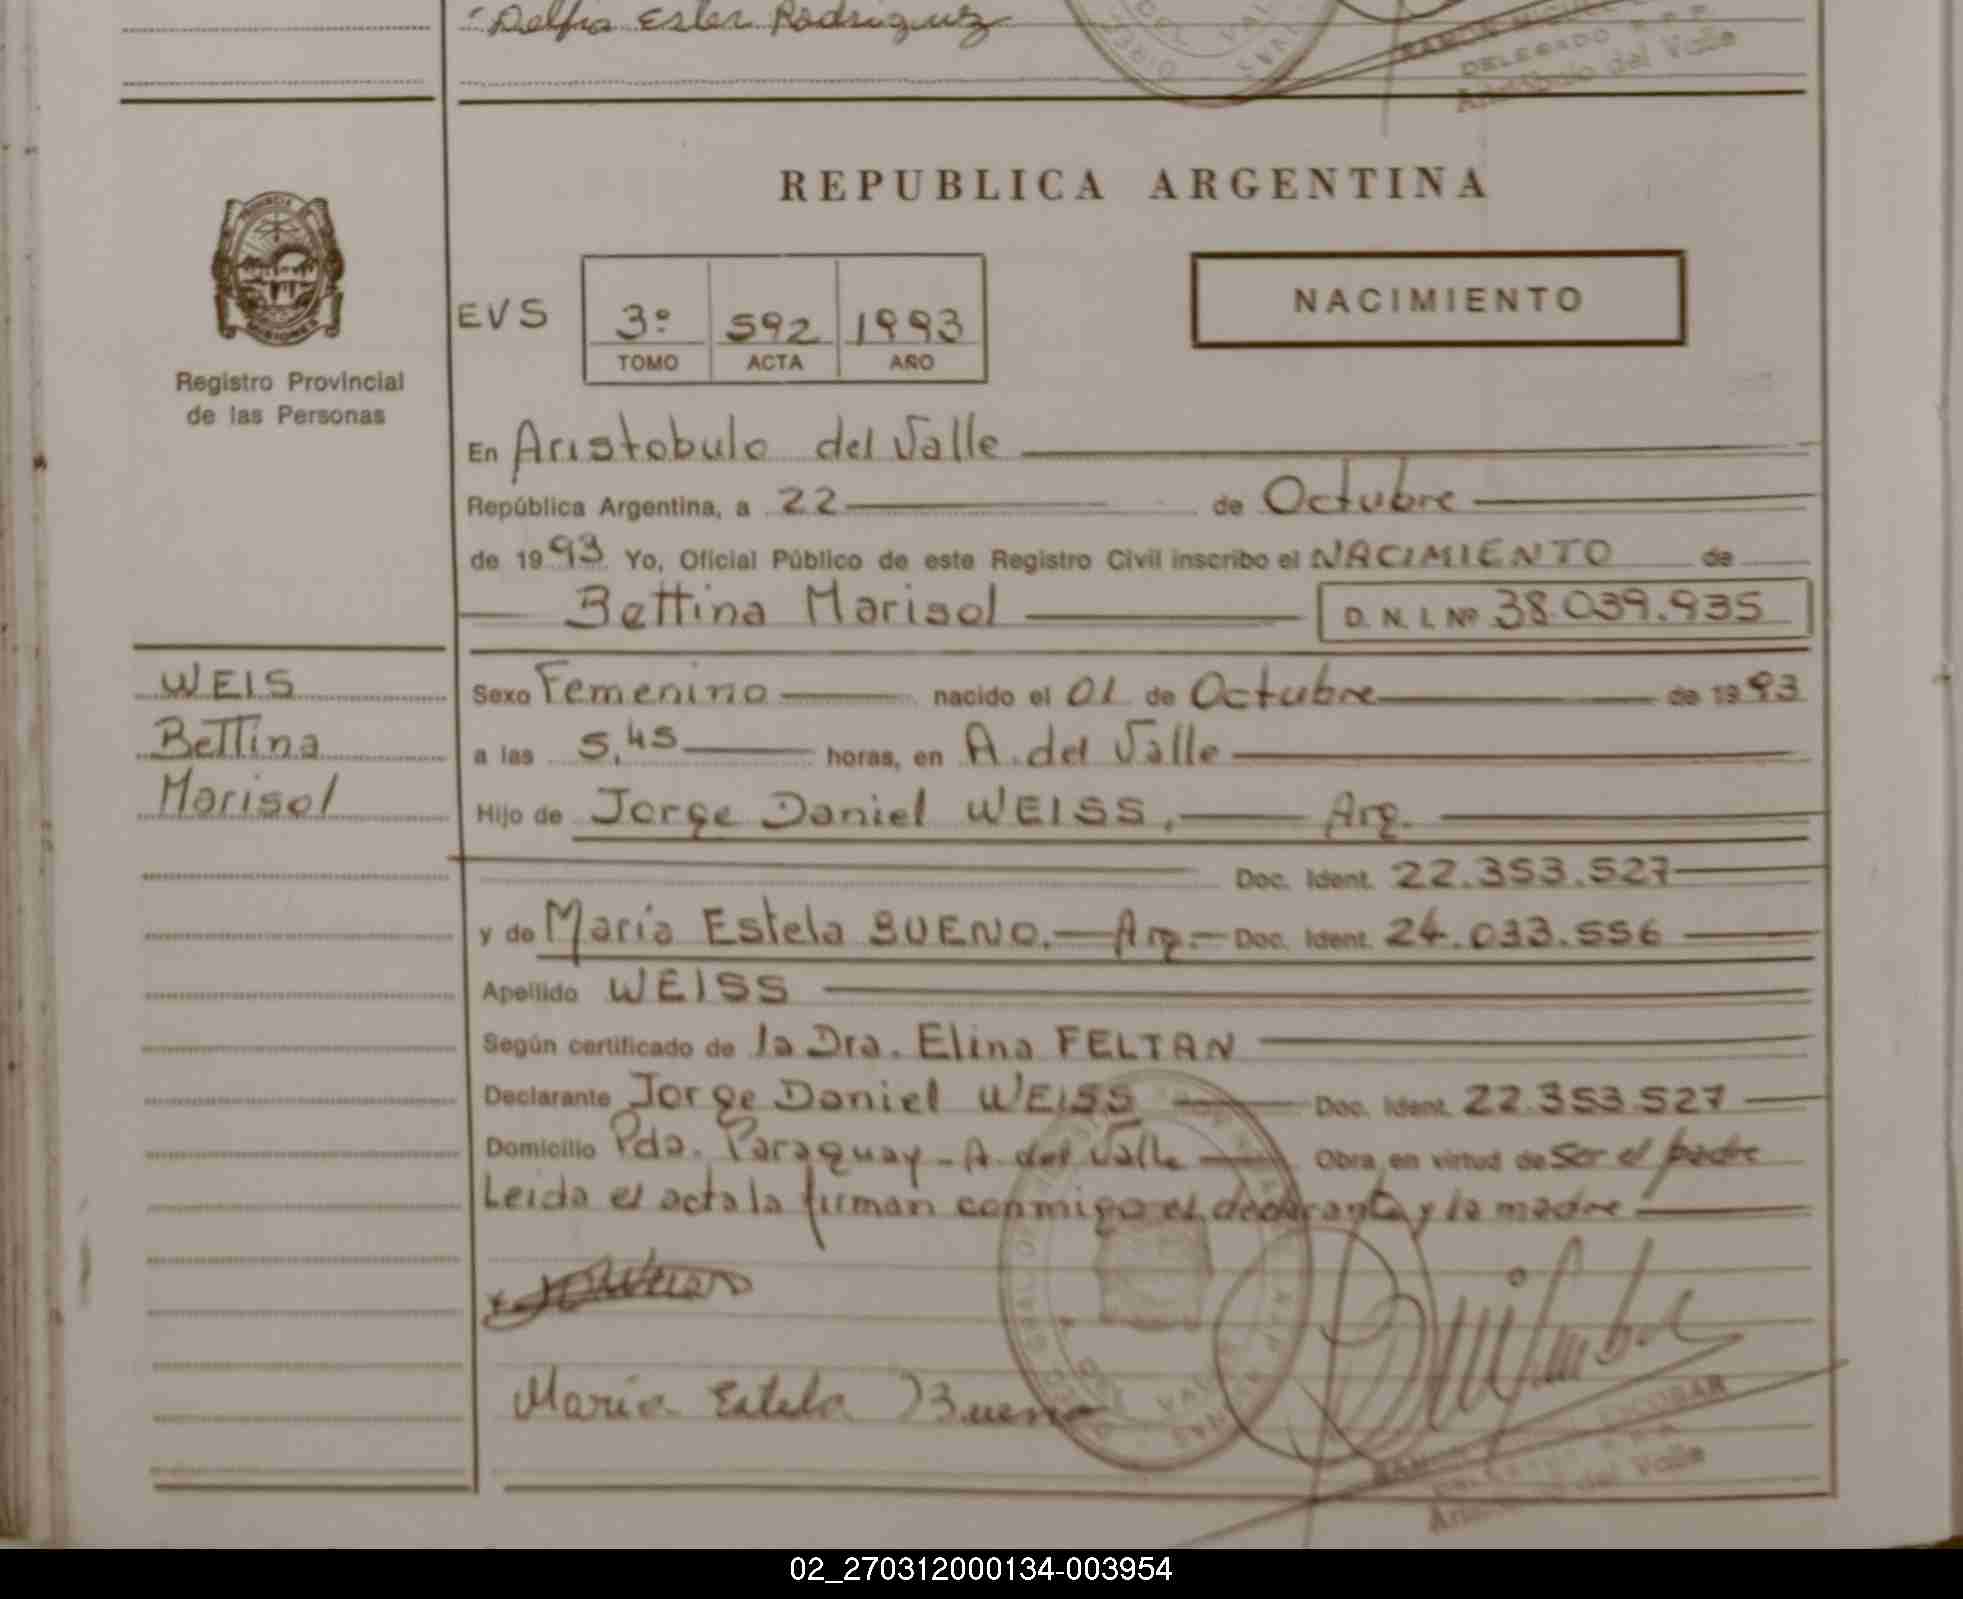 Delfia Ester Rodriguez
DELEGADO R.P.P.
Aristóbulo del Valle
REPUBLICA ARGENTINA
Registro Provincial
de las Personas
EVS
3º 592 1993
TOMO ACTA AÑO
NACIMIENTO
En Aristobulo del Valle
República Argentina, a 22 de Octubre
de 1993 Yo, Oficial Público de este Registro Civil inscribo el NACIMIENTO de
Bettina Marisol D. N. I. Nº 38.039.935
WEIS
Bettina
Marisol
Sexo Femenino nacido el 01 de Octubre de 1993
a las 5,45 horas, en A. del Valle
Hijo de Jorge Daniel WEISS, Arg.
Doc. Ident. 22.353.527
y de María Estela BUENO. Arg. Doc. Ident. 24.033.556
Apellido WEISS
Según certificado de la Dra. Elina FELTAN
Declarante Jorge Daniel WEISS Doc. Ident. 22.353.527
Domicilio Pda. Paraguay - A. del Valle Obra en virtud de ser el padre
Leida el acta la firman conmigo el declarante y la madre
María Estela Bueno
ESCOBAR
del Valle
02_270312000134-003954